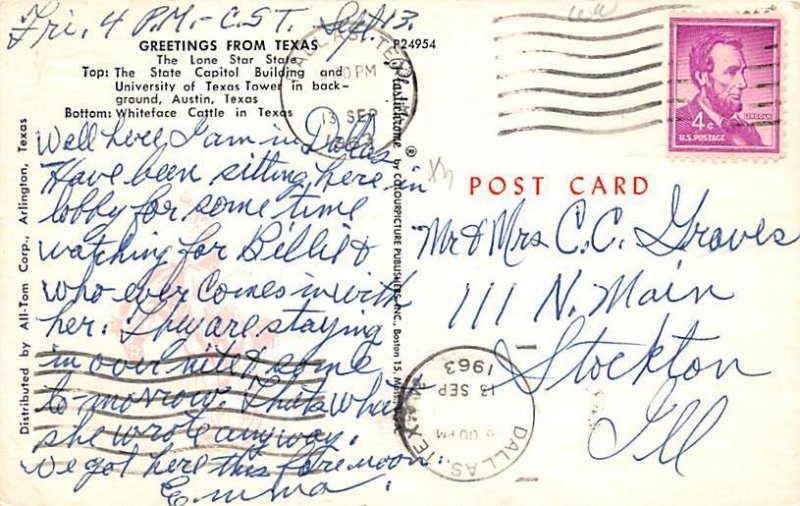 Fri, 4 P.M. - C.S.T. Sept. 13.
GREETINGS FROM TEXAS
The Lone Star State
Top: The State Capitol Building and
University of Texas Tower in back-
ground, Austin, Texas
Bottom: Whiteface Cattle in Texas
P24954
Well here I am in Dallas
Have been sitting here in
lobby for some time
watching for Billie &
who-ever comes in with
her. They are staying
in over nite & some
to-morrow. That's what
she wrote anyway.
We got here this forenoon.
Emma
Distributed by All-Tom Corp., Arlington, Texas
Plastichrome ® by COLOURPICTURE PUBLISHERS, INC., Boston 15, Mass.
DALLAS, TEX
PM
13 SEP
1963
4¢
LINCOLN
U.S. POSTAGE
POST CARD
Mr & Mrs C. C. Graves
111 N. Main
Stockton
Ill
DALLAS, TEX
00 PM
13 SEP
1963